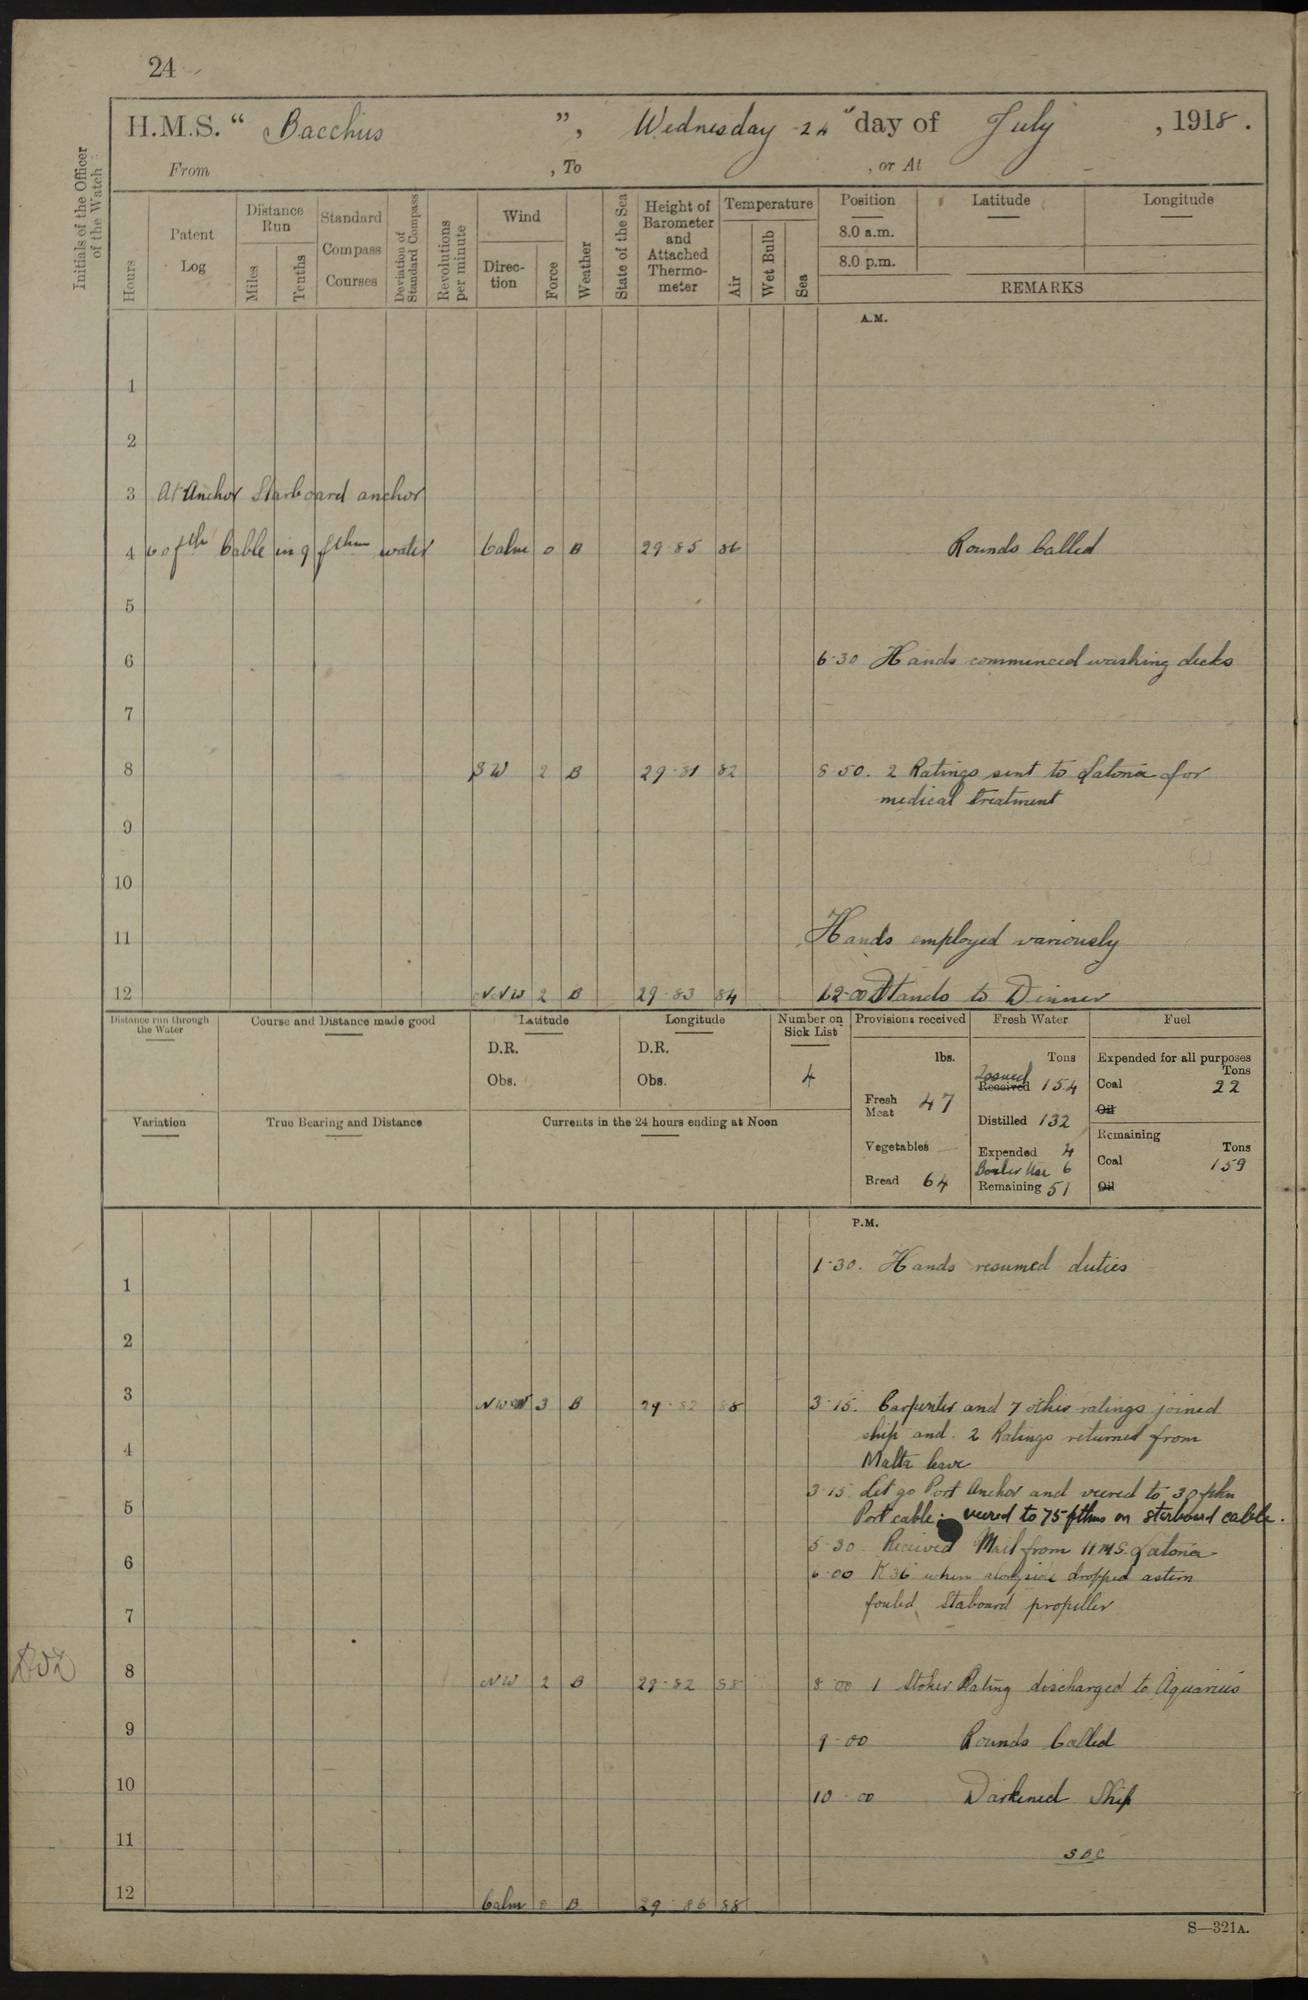 24
H.M.S. " Bacchus ", Wednesday 24 " day of July , 1918.
From , To , or At
Initials of the Officer of the Watch
Hours
Patent Log
Distance Run
Miles
Tenths
Standard Compass Courses
Deviation of Standard Compass
Revolutions per minute
Wind
Direction
Force
Weather
State of the Sea
Height of Barometer and Attached Thermometer
Temperature
Air
Wet Bulb
Sea
Position
8.0 a.m.
8.0 p.m.
Latitude
Longitude
REMARKS
A.M.
1
2
3 At Anchor Starboard anchor
4 60 fth Cable in 9 fthm water Calm 0 B 29·85 86 Rounds Called
5
6 6·30 Hands commenced washing decks
7
8 SW 2 B 29·81 82 8·50. 2 Ratings sent to Latona for
medical treatment
9
10
11 Hands employed variously
12 NNW 2 B 29·83 84 12·00 Hands to Dinner
Distance run through the Water
Course and Distance made good
Latitude
D.R.
Obs.
Longitude
D.R.
Obs.
Number on Sick List
4
Provisions received
lbs.
Fresh Meat 47
Vegetables —
Bread 64
Fresh Water
Tons
Issued
Received 154
Distilled 132
Expended 4
Boiler Use 6
Remaining 51
Fuel
Expended for all purposes
Tons
Coal 22
Oil
Remaining
Tons
Coal 159
Oil
Variation
True Bearing and Distance
Currents in the 24 hours ending at Noon
P.M.
1·30. Hands resumed duties
1
2
3 3 B 29·82 88 3·15. Carpenter and 7 other ratings joined
ship and. 2 Ratings returned from
4 Malta leave
3·15. Let go Port Anchor and veered to 30 fthm
5 Port cable: veered to 75 fthms on starboard cable.
5·30 Received Mail from H.M.S. Latona
6 6·00 K36 when alongside dropped astern
fouled Staboard propeller
7
8 NW 2 B 29·82 88 8·00 1 Stoker Rating discharged to Aquarius
9 9·00 Rounds Called
10 10·00 Darkened Ship
11
12 Calm 0 B 29·86 88
S—321A.